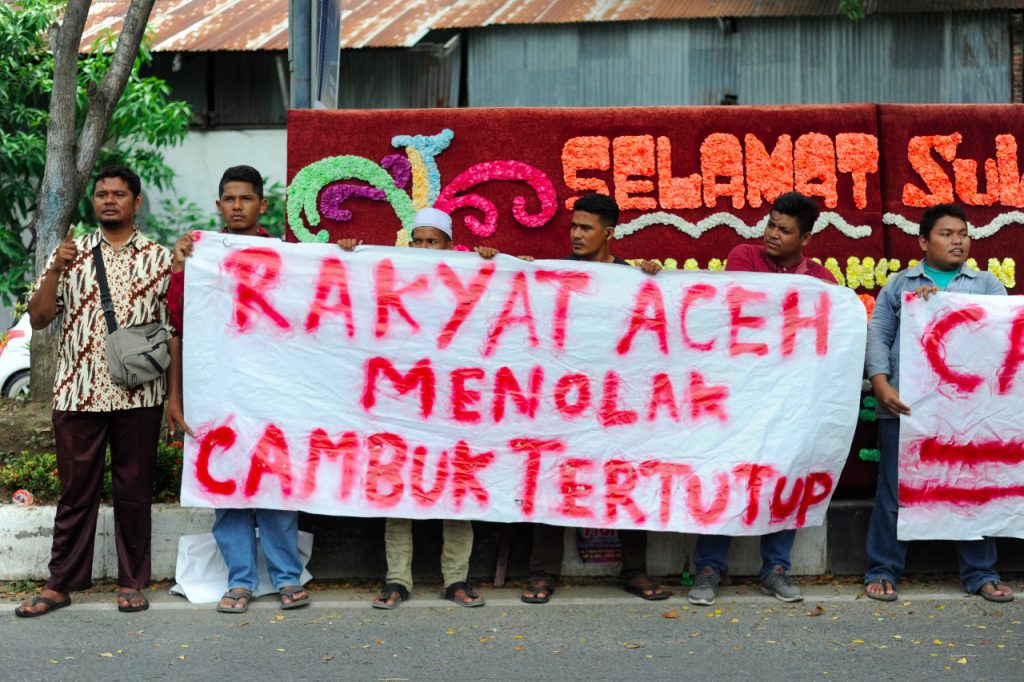 SELAMAT
RAKYAT ACEH
MENOLAK
CAMBUK TERTUTUP
CA